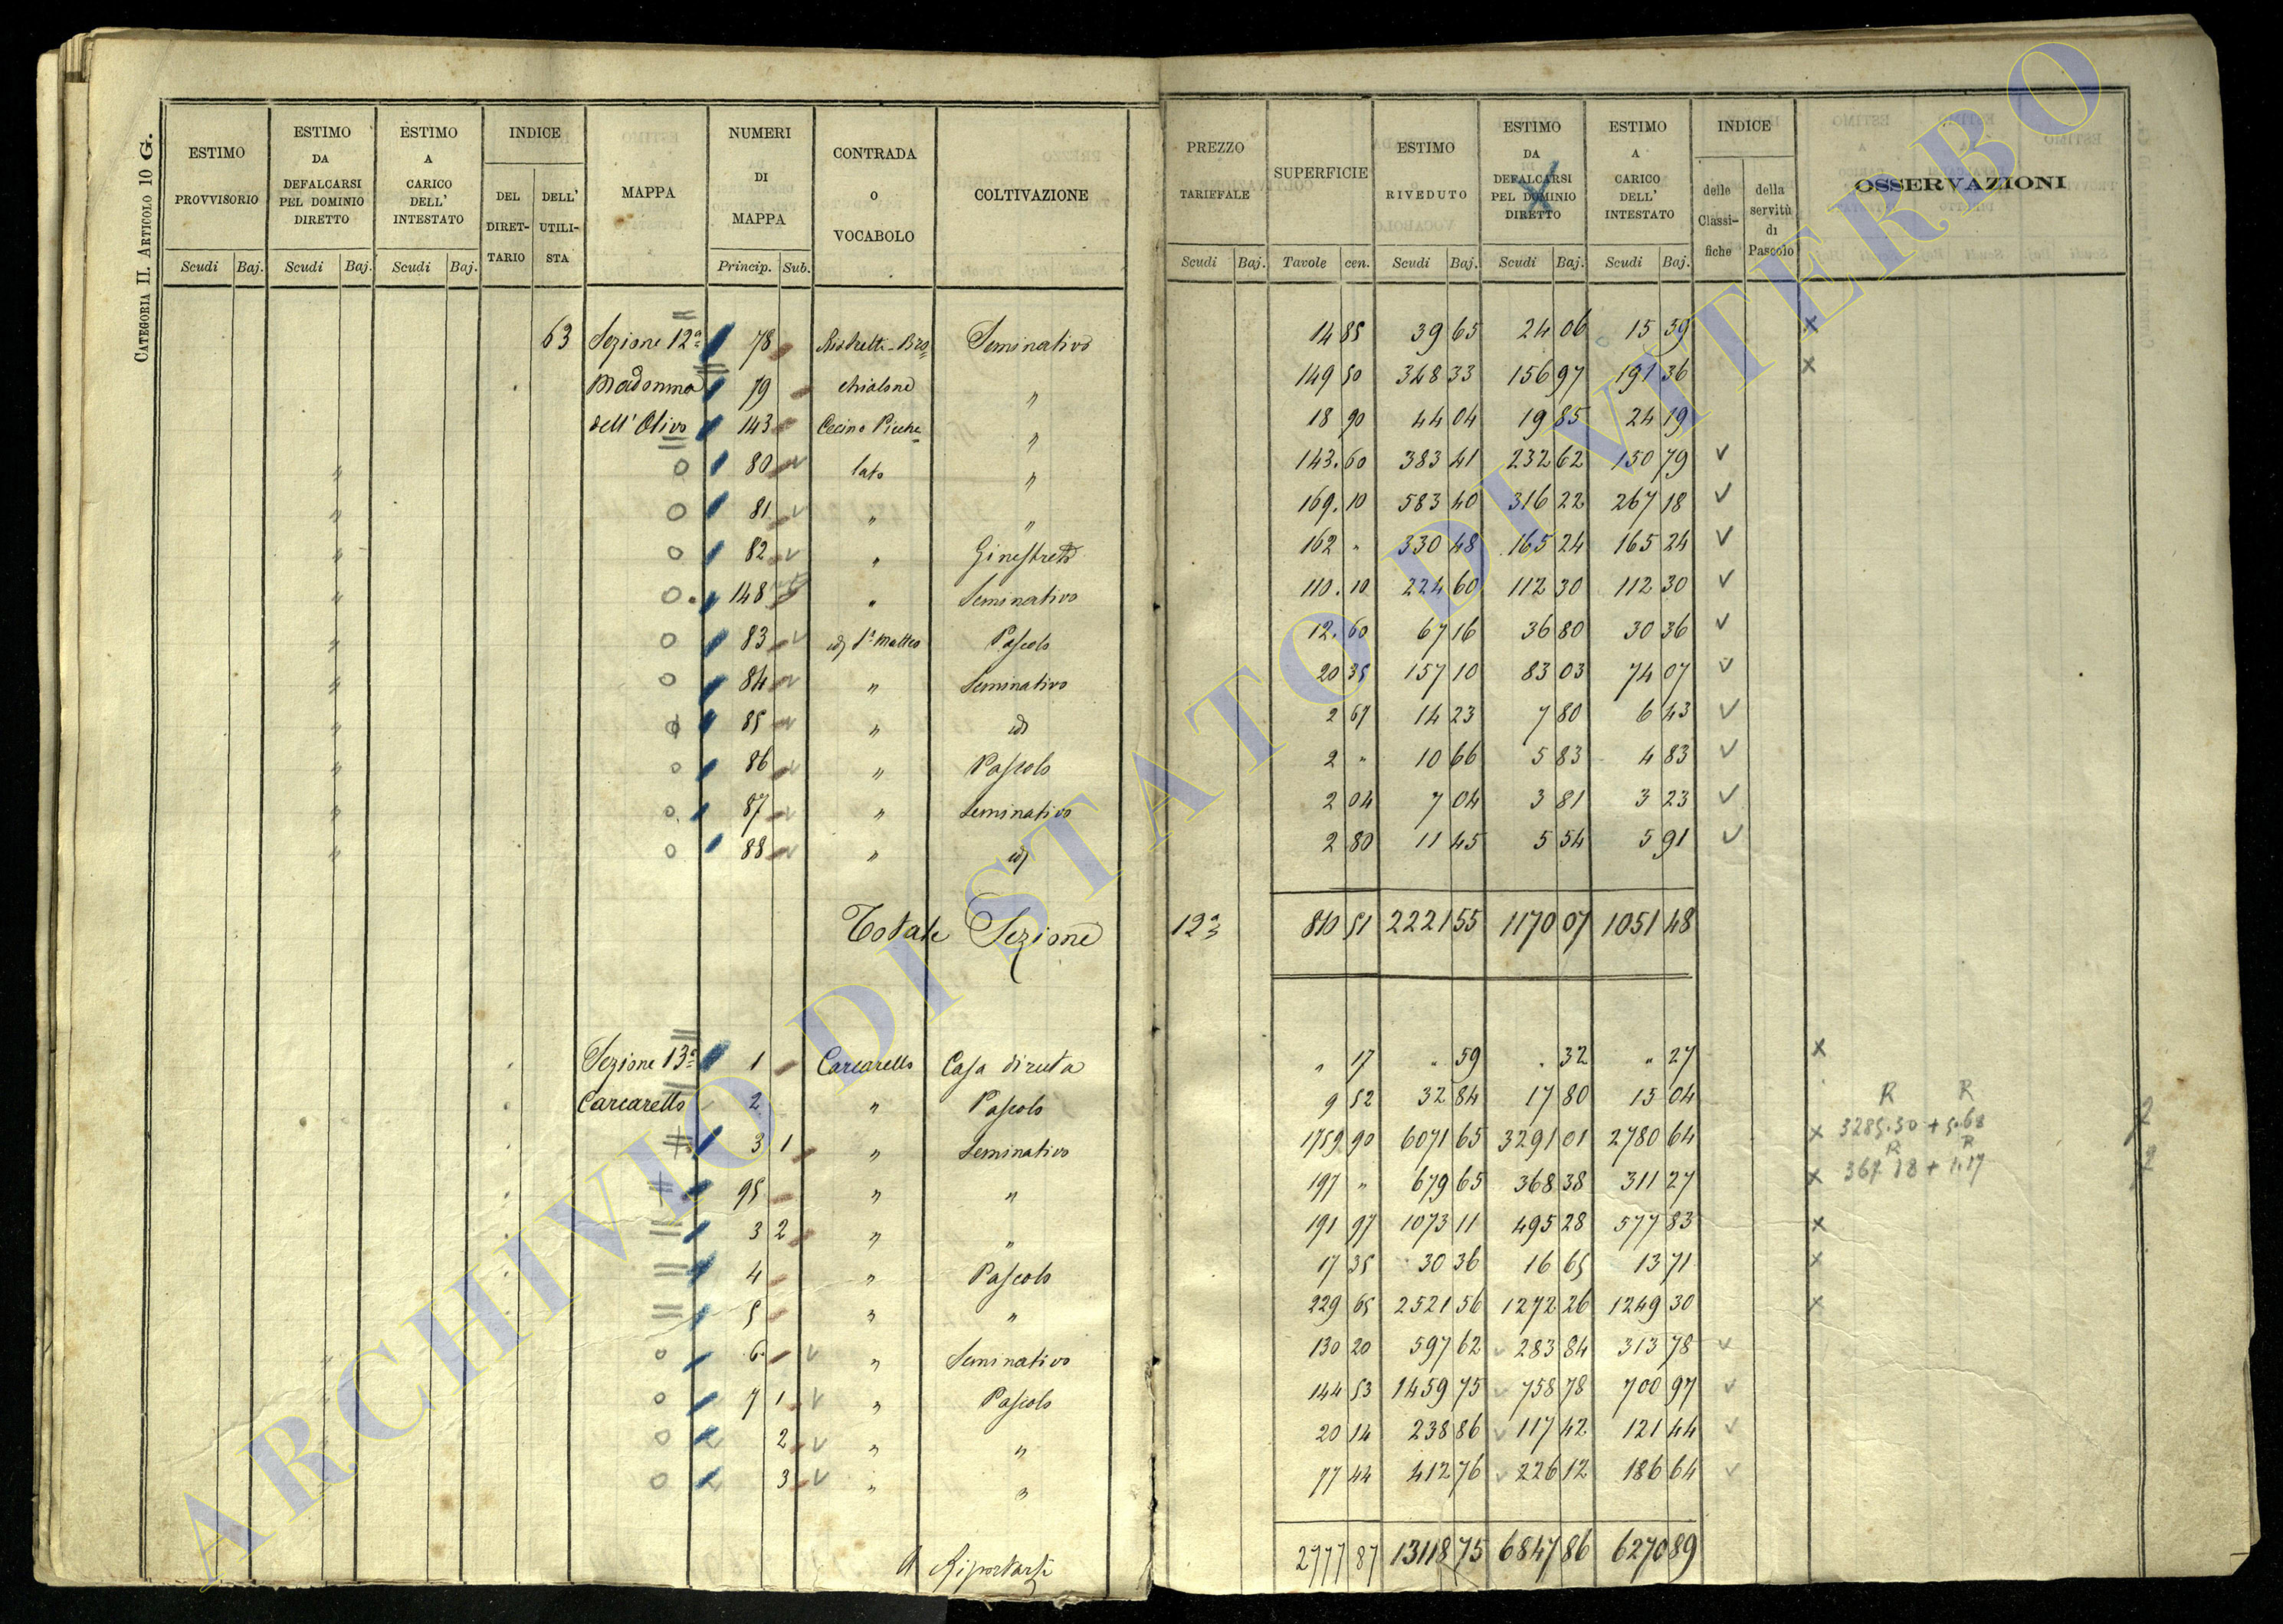 CATEGORIA II. ARTICOLO 10 G.
ESTIMO PROVVISORIO
ESTIMO DA DEFALCARSI PEL DOMINIO DIRETTO
ESTIMO A CARICO DELL' INTESTATO
INDICE
DEL DIRETTARIO
DELL' UTILISTA
MAPPA
NUMERI DI MAPPA
CONTRADA o VOCABOLO
COLTIVAZIONE
PREZZO TARIFFALE
SUPERFICIE
ESTIMO RIVEDUTO
ESTIMO DA DEFALCARSI PEL DOMINIO DIRETTO
ESTIMO A CARICO DELL' INTESTATO
INDICE
delle Classifiche
della servitù di Pascolo
OSSERVAZIONI
Scudi Baj. Scudi Baj. Scudi Baj. Princip. Sub. Scudi Baj. Tavole cen. Scudi Baj. Scudi Baj. Scudi Baj.
63 Sezione 12ª 78 Seminativo 14 85 39 65 24 06 15 59 x
Madonna 79 chialone " 149 50 348 33 156 97 191 36 x
dell' Olivo 143 Cecino Picche " 18 90 44 04 19 85 24 19
" O 80 lato " 143. 60 383 41 232 62 150 79 v
" O 81 " " 169. 10 583 40 316 22 267 18 v
" O 82 " Ginestreto 162 " 330 48 165 24 165 24 v
" O 148 " Seminativo 110. 10 224 60 112 30 112 30 v
" O 83 id Sn Matteo Pascolo 12. 60 67 16 36 80 30 36 v
" O 84 " Seminativo 20 35 157 10 83 03 74 07 v
" O 85 " id 2 67 14 23 7 80 6 43 v
" O 86 " Pascolo 2 " 10 66 5 83 4 83 v
" O 87 " Seminativo 2 04 7 04 3 81 3 23 v
" O 88 " id 2 80 11 45 5 54 5 91 v
Totale Sezione 12ª 810 51 2221 55 1170 07 1051 48
Sezione 13ª 1 Carcarello Casa diruta " 17 " 59 " 32 " 27 x
Carcarello 2 " Pascolo 9 52 32 84 17 80 15 04 R R
3 1 " Seminativo 1759 90 6071 65 3291 01 2780 64 x 3285.30 + 5.68 2
R R
95 " " 197 " 679 65 368 38 311 27 x 367 18 + 1.17 2
3 2 " " 191 97 1073 11 495 28 577 83 x
4 " Pascolo 17 35 30 36 16 65 13 71 x
5 " " 229 65 2521 56 1272 26 1249 30 x
O 6 v " Seminativo 130 20 597 62 283 84 313 78 v
O 7 1 v " Pascolo 144 53 1459 75 758 78 700 97 v
O 2 v " " 20 14 238 86 117 42 121 44 v
O 3 v " " 77 44 412 76 226 12 186 64 v
A Riportarsi 2777 87 13118 75 6847 86 6270 89
ARCHIVIO DI STATO DI VITERBO